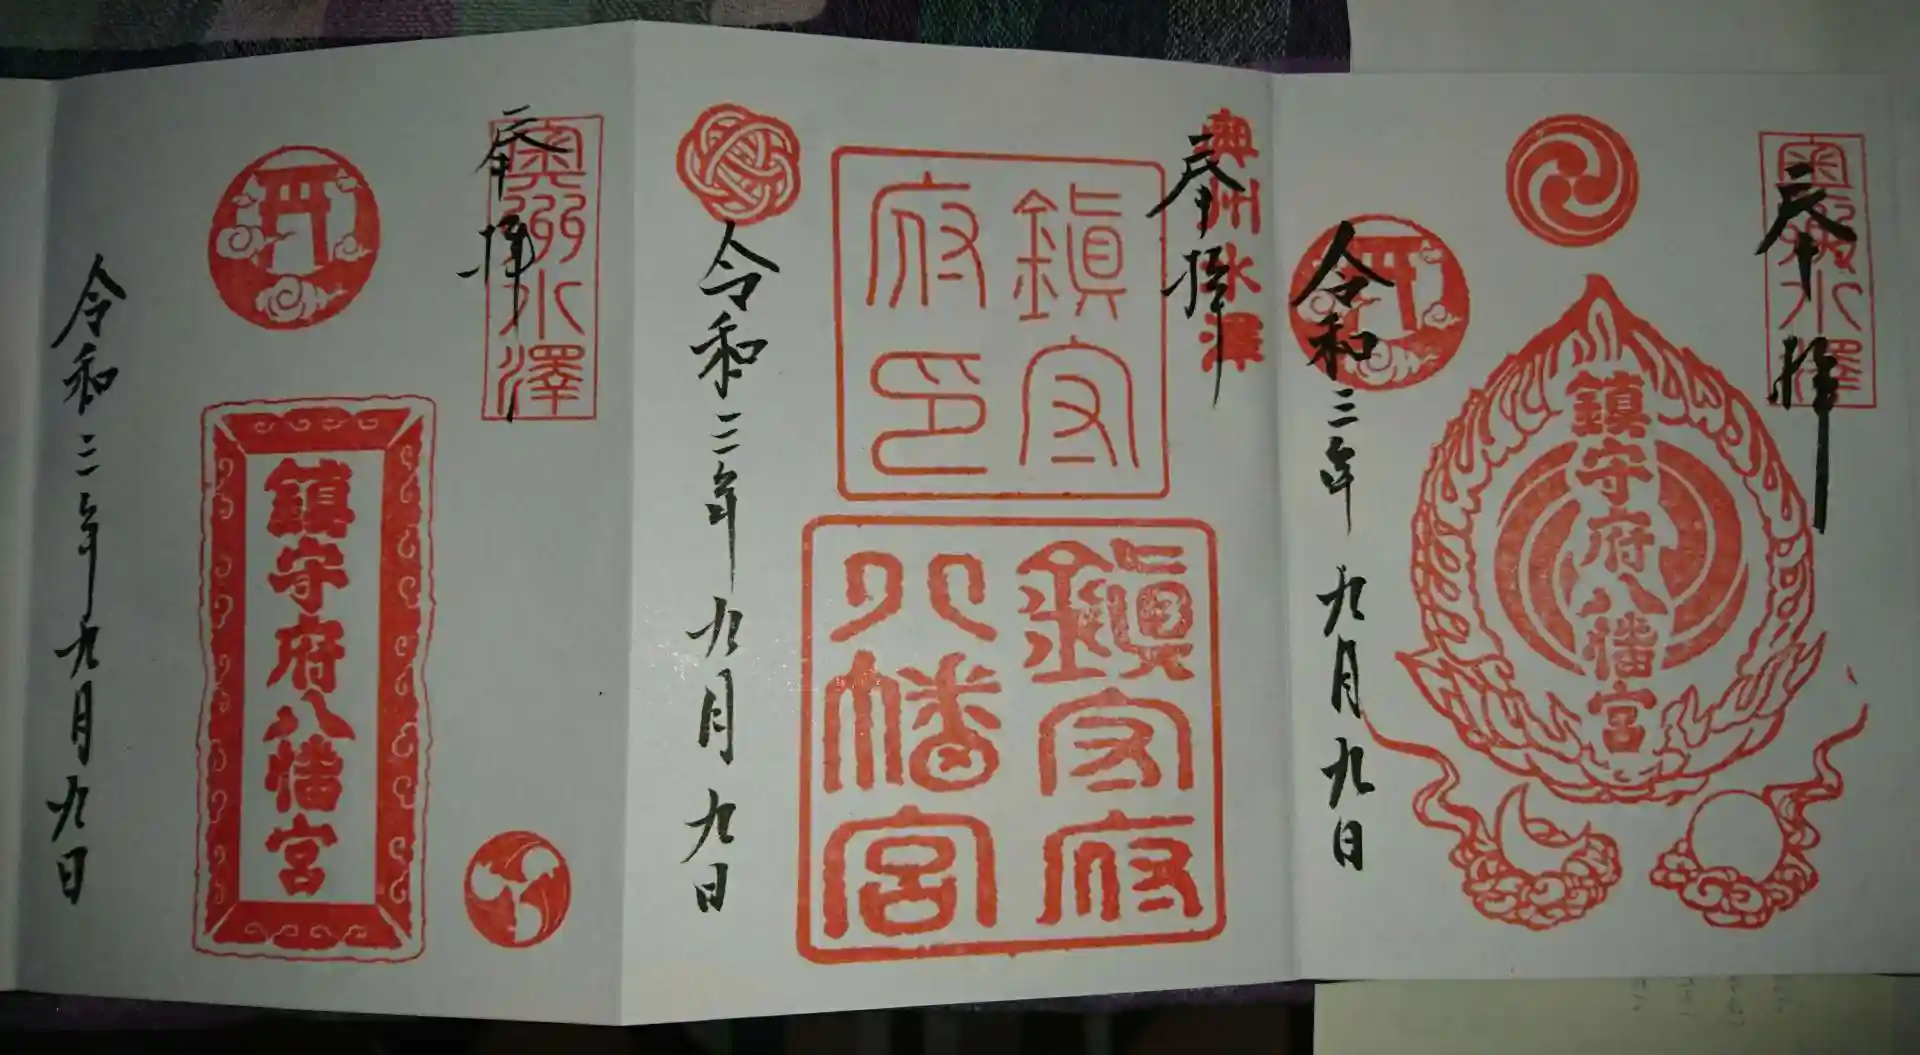 奥州水澤
奉拝
鎮守府八幡宮
令和三年九月九日
奥州水澤
奉拝
鎮守
府印
鎮守府
八幡宮
令和三年九月九日
奥州水澤
奉拝
鎮守府八幡宮
令和三年九月九日